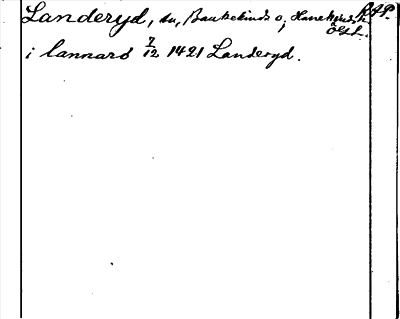 Landeryd, sn, Bankekinds o, Hanekinds h. RAP.
Ögtl.
i lannarö 7/12 1421 Landeryd.